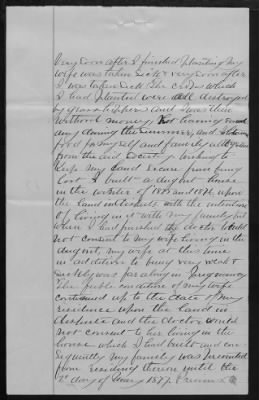 Very soon after I finished planting my
wife was taken sick & very soon after
I was taken sick The crops which
I had planted were all destroyed
by grasshoppers and I was there
without money, not having earned
any during the summer, and obtained
food for myself and family altogether
from the aid Society. Wishing to
keep my land secure from being
lost I built a dugout house
in the winter of 1875 and 1876, upon
the land in with the intention
of living in it with my family but
when I had finished the doctor would
not consent to my wife living in the
dugout, my wife at this time
in addition to being very weak &
sickly was far along in pregnancy
The feeble condition of my wife
continued up to the date of my
residence upon the land in
and the doctor would
not consent to her living in the
house which I had built and con-
sequently my family was prevented
from residing thereon until the
day of 1877.